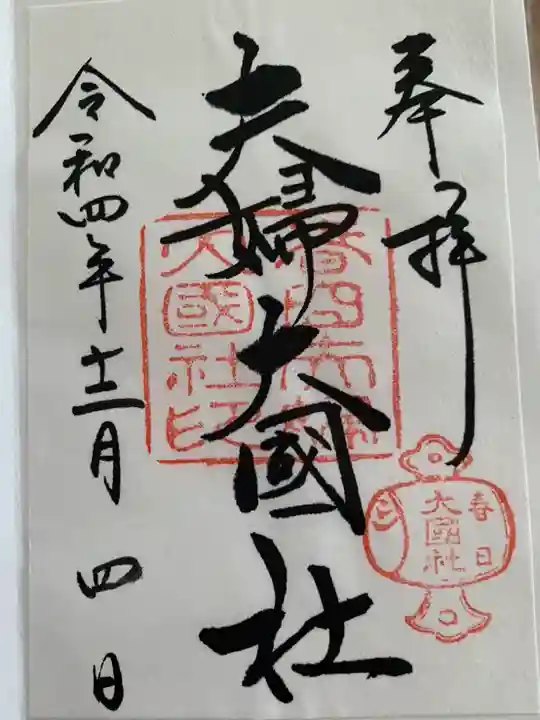 奉拝
夫婦大國社
令和四年十二月四日
春日
大國社
大國社印